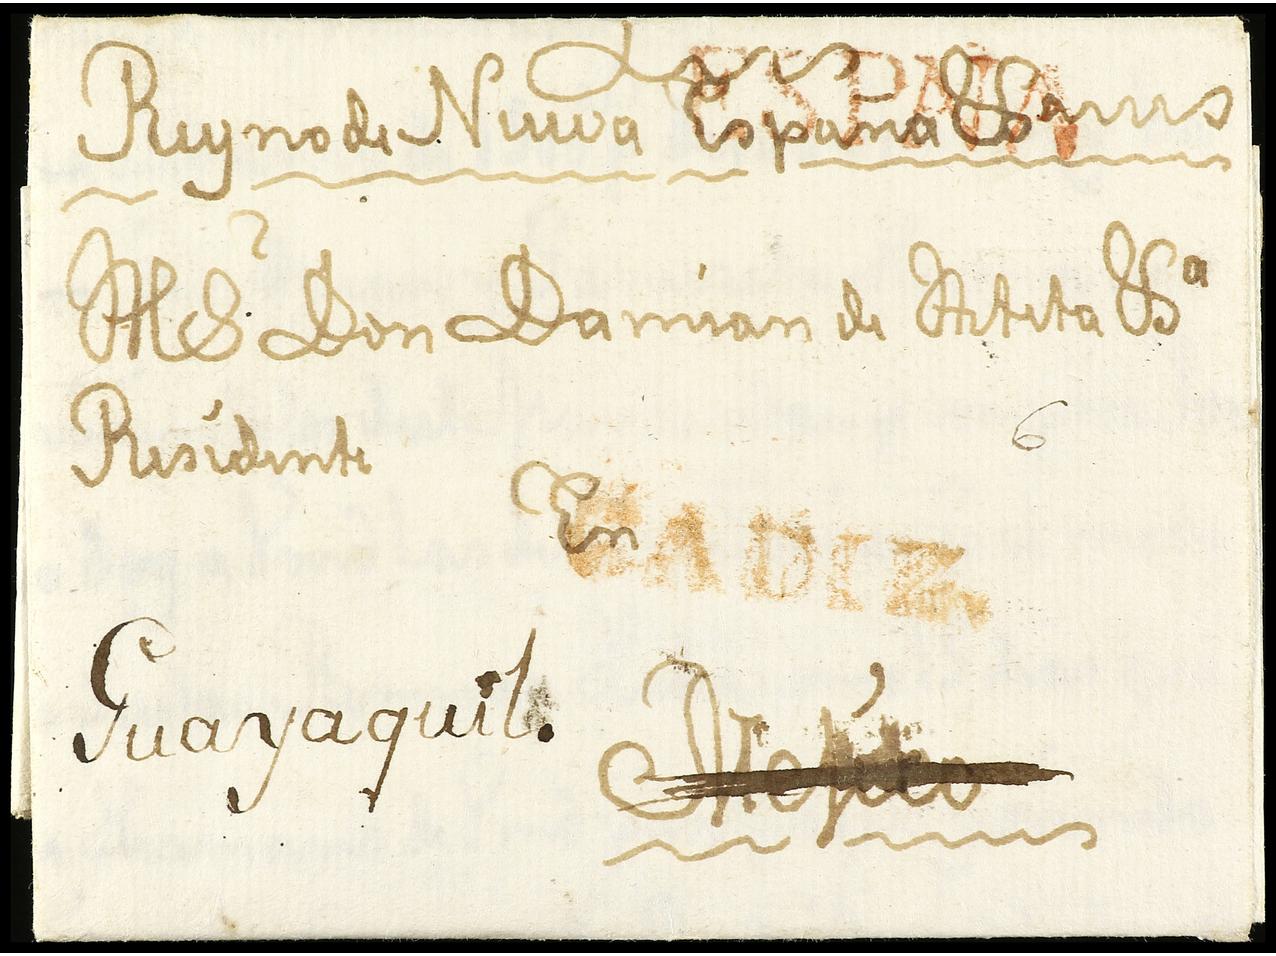 Reyno de Nueva España
ESPAÑA
Mr Sr Don Damian de
Residente
6
En
CADIZ
Guayaquil.
Mejico